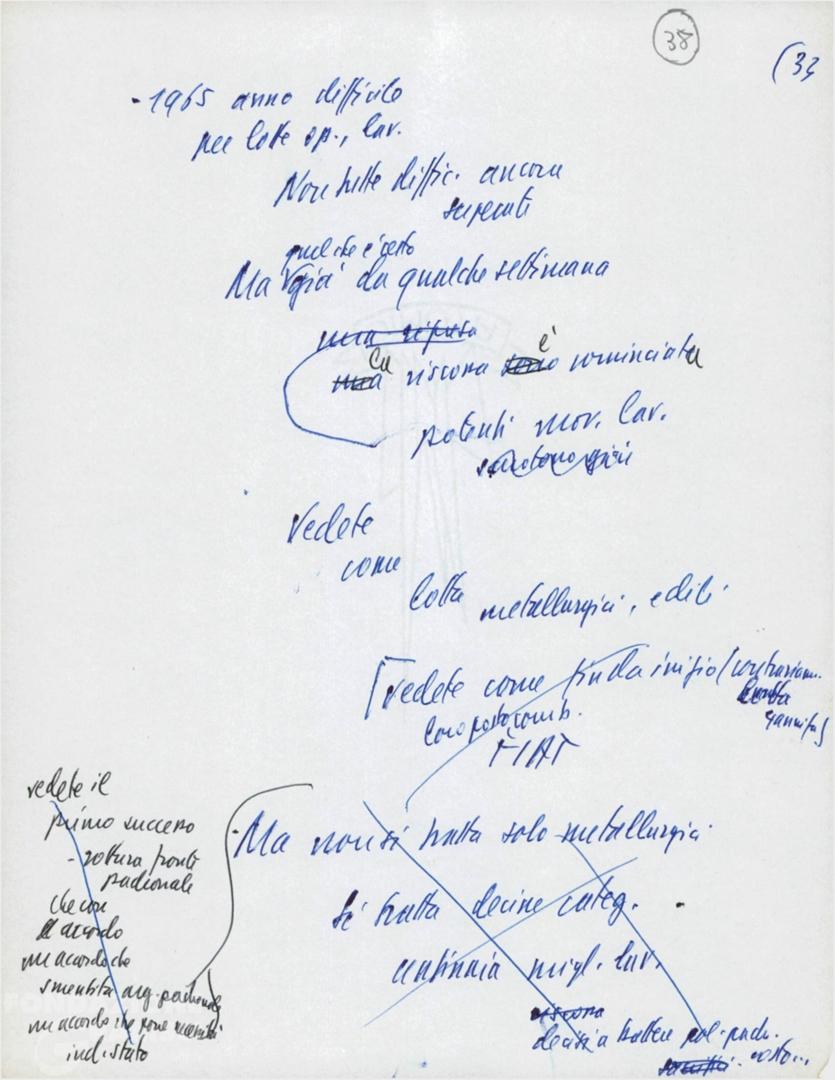 38
(33
- 1965 anno difficile
per lotte op., lav.
Non tutte diffic. ancora
superati
quel che è certo
Ma già da qualche settimana
una ripresa
la riscossa è cominciata
potenti mov. lav.
Vedete
come
lotta metallurgici, edili
[vedete come fin da inizio
loro posto comb.
FIAT
vedete il
primo successo
- rottura fronte
padronale
che con
accordo
un accordo che
smentita arg. padronale
un accordo che pone
ind. stato
Ma non si tratta solo metallurgici
Si tratta decine categ.
centinaia migl. lav.
riscossa
decisi a battere pol. padr.
costo...